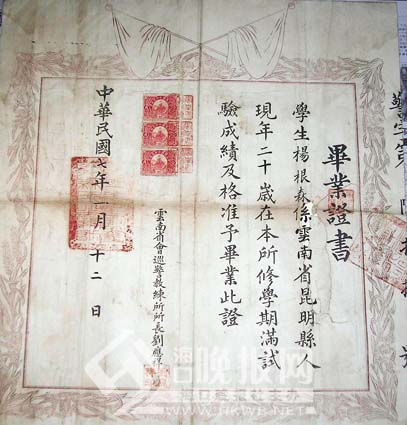 畢業證書
學生楊根森係雲南省昆明縣人
現年二十歲在本所修學期滿試
驗成績及格准予畢業此證
雲南省會巡警教練所所長劉應祥
中華民國七年一月十二日
海口晚报网
WWW.HKWB.NET